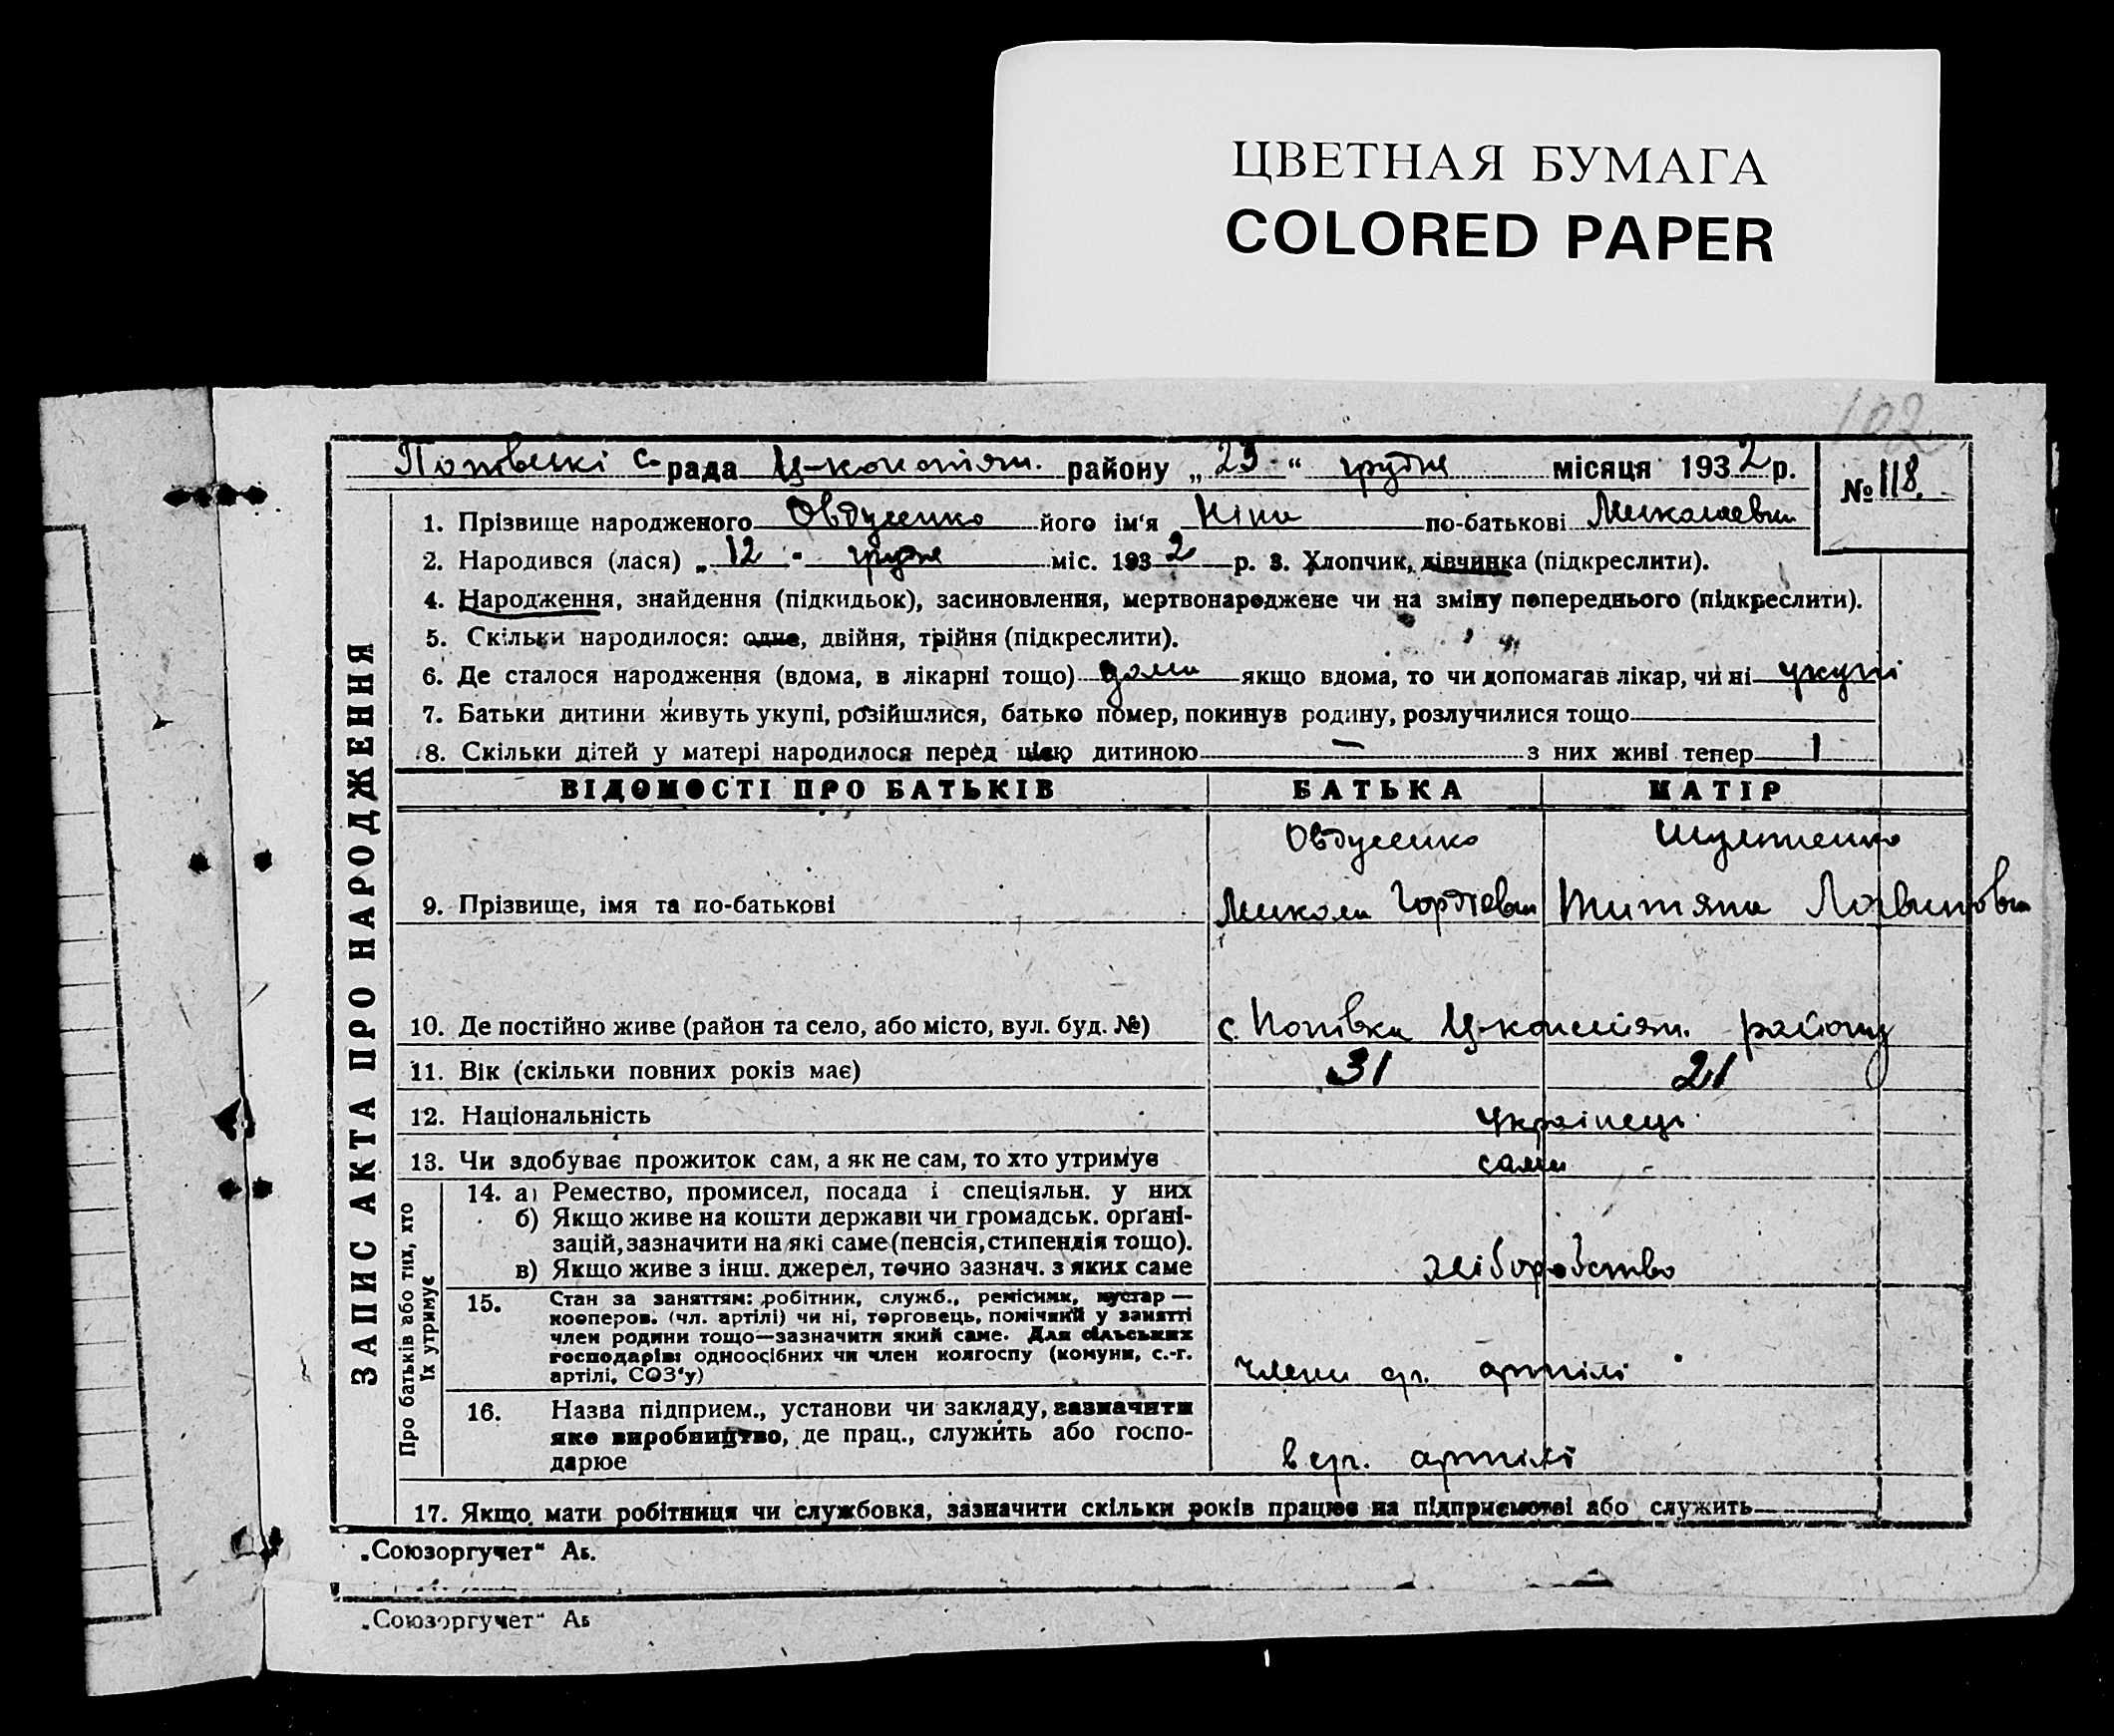 ЦВЕТНАЯ БУМАГА
COLORED PAPER
102
Попівські с. рада Ц-констян. району „23“ грудня місяця 1932 р.
№ 118.
1. Прізвище народженого Овдуенко його ім'я Ніна по-батькові Миколаевна
2. Народився (лася) „12 - грудня міс. 1932 р. 3. Хлопчик, дівчинка (підкреслити).
4. Народження, знайдення (підкидьок), засиновлення, мертвонароджене чи на зміну попереднього (підкреслити).
5. Скільки народилося: одне, двійня, трійня (підкреслити).
6. Де сталося народження (вдома, в лікарні тощо) дома якщо вдома, то чи допомагав лікар, чи ні укупі
7. Батьки дитини живуть укупі, розійшлися, батько помер, покинув родину, розлучилися тощо
8. Скільки дітей у матері народилося перед цією дитиною — з них живі тепер 1
ЗАПИС АКТА ПРО НАРОДЖЕННЯ
ВІДОМОСТІ ПРО БАТЬКІВ БАТЬКА МАТІР
Овдуенко
9. Прізвище, імя та по-батькові Микола Титяна
10. Де постійно живе (район та село, або місто, вул. буд. №) с. Попівка району
11. Вік (скільки повних років має) 31 21
12. Національність Українець
13. Чи здобуває прожиток сам, а як не сам, то хто утримує сами
Про батьків або тих, хто
їх утримує
14. а) Ремество, промисел, посада і спеціяльн. у них
б) Якщо живе на кошти держави чи громадськ. орґані-
зацій, зазначити на які саме (пенсія, стипендія тощо).
в) Якщо живе з інш. джерел, точно зазнач. з яких саме хліборобство
15. Стан за заняттям: робітник, служб., ремісник, кустар —
кооперов. (чл. артілі) чи ні, торговець, помічний у занятті
член родини тощо—зазначити який саме. Для сільських
господарів: одноосібних чи член колгоспу (комуни, с.-г.
артілі, СОЗ'у) члени артілі
16. Назва підприєм., установи чи закладу, зазначити
яке виробництво, де прац., служить або госпо-
дарює в артілі
17. Якщо мати робітниця чи службовка, зазначити скільки років працює на підприємстві або служить
„Союзоргучет“ Аб.
„Союзоргучет“ Аб